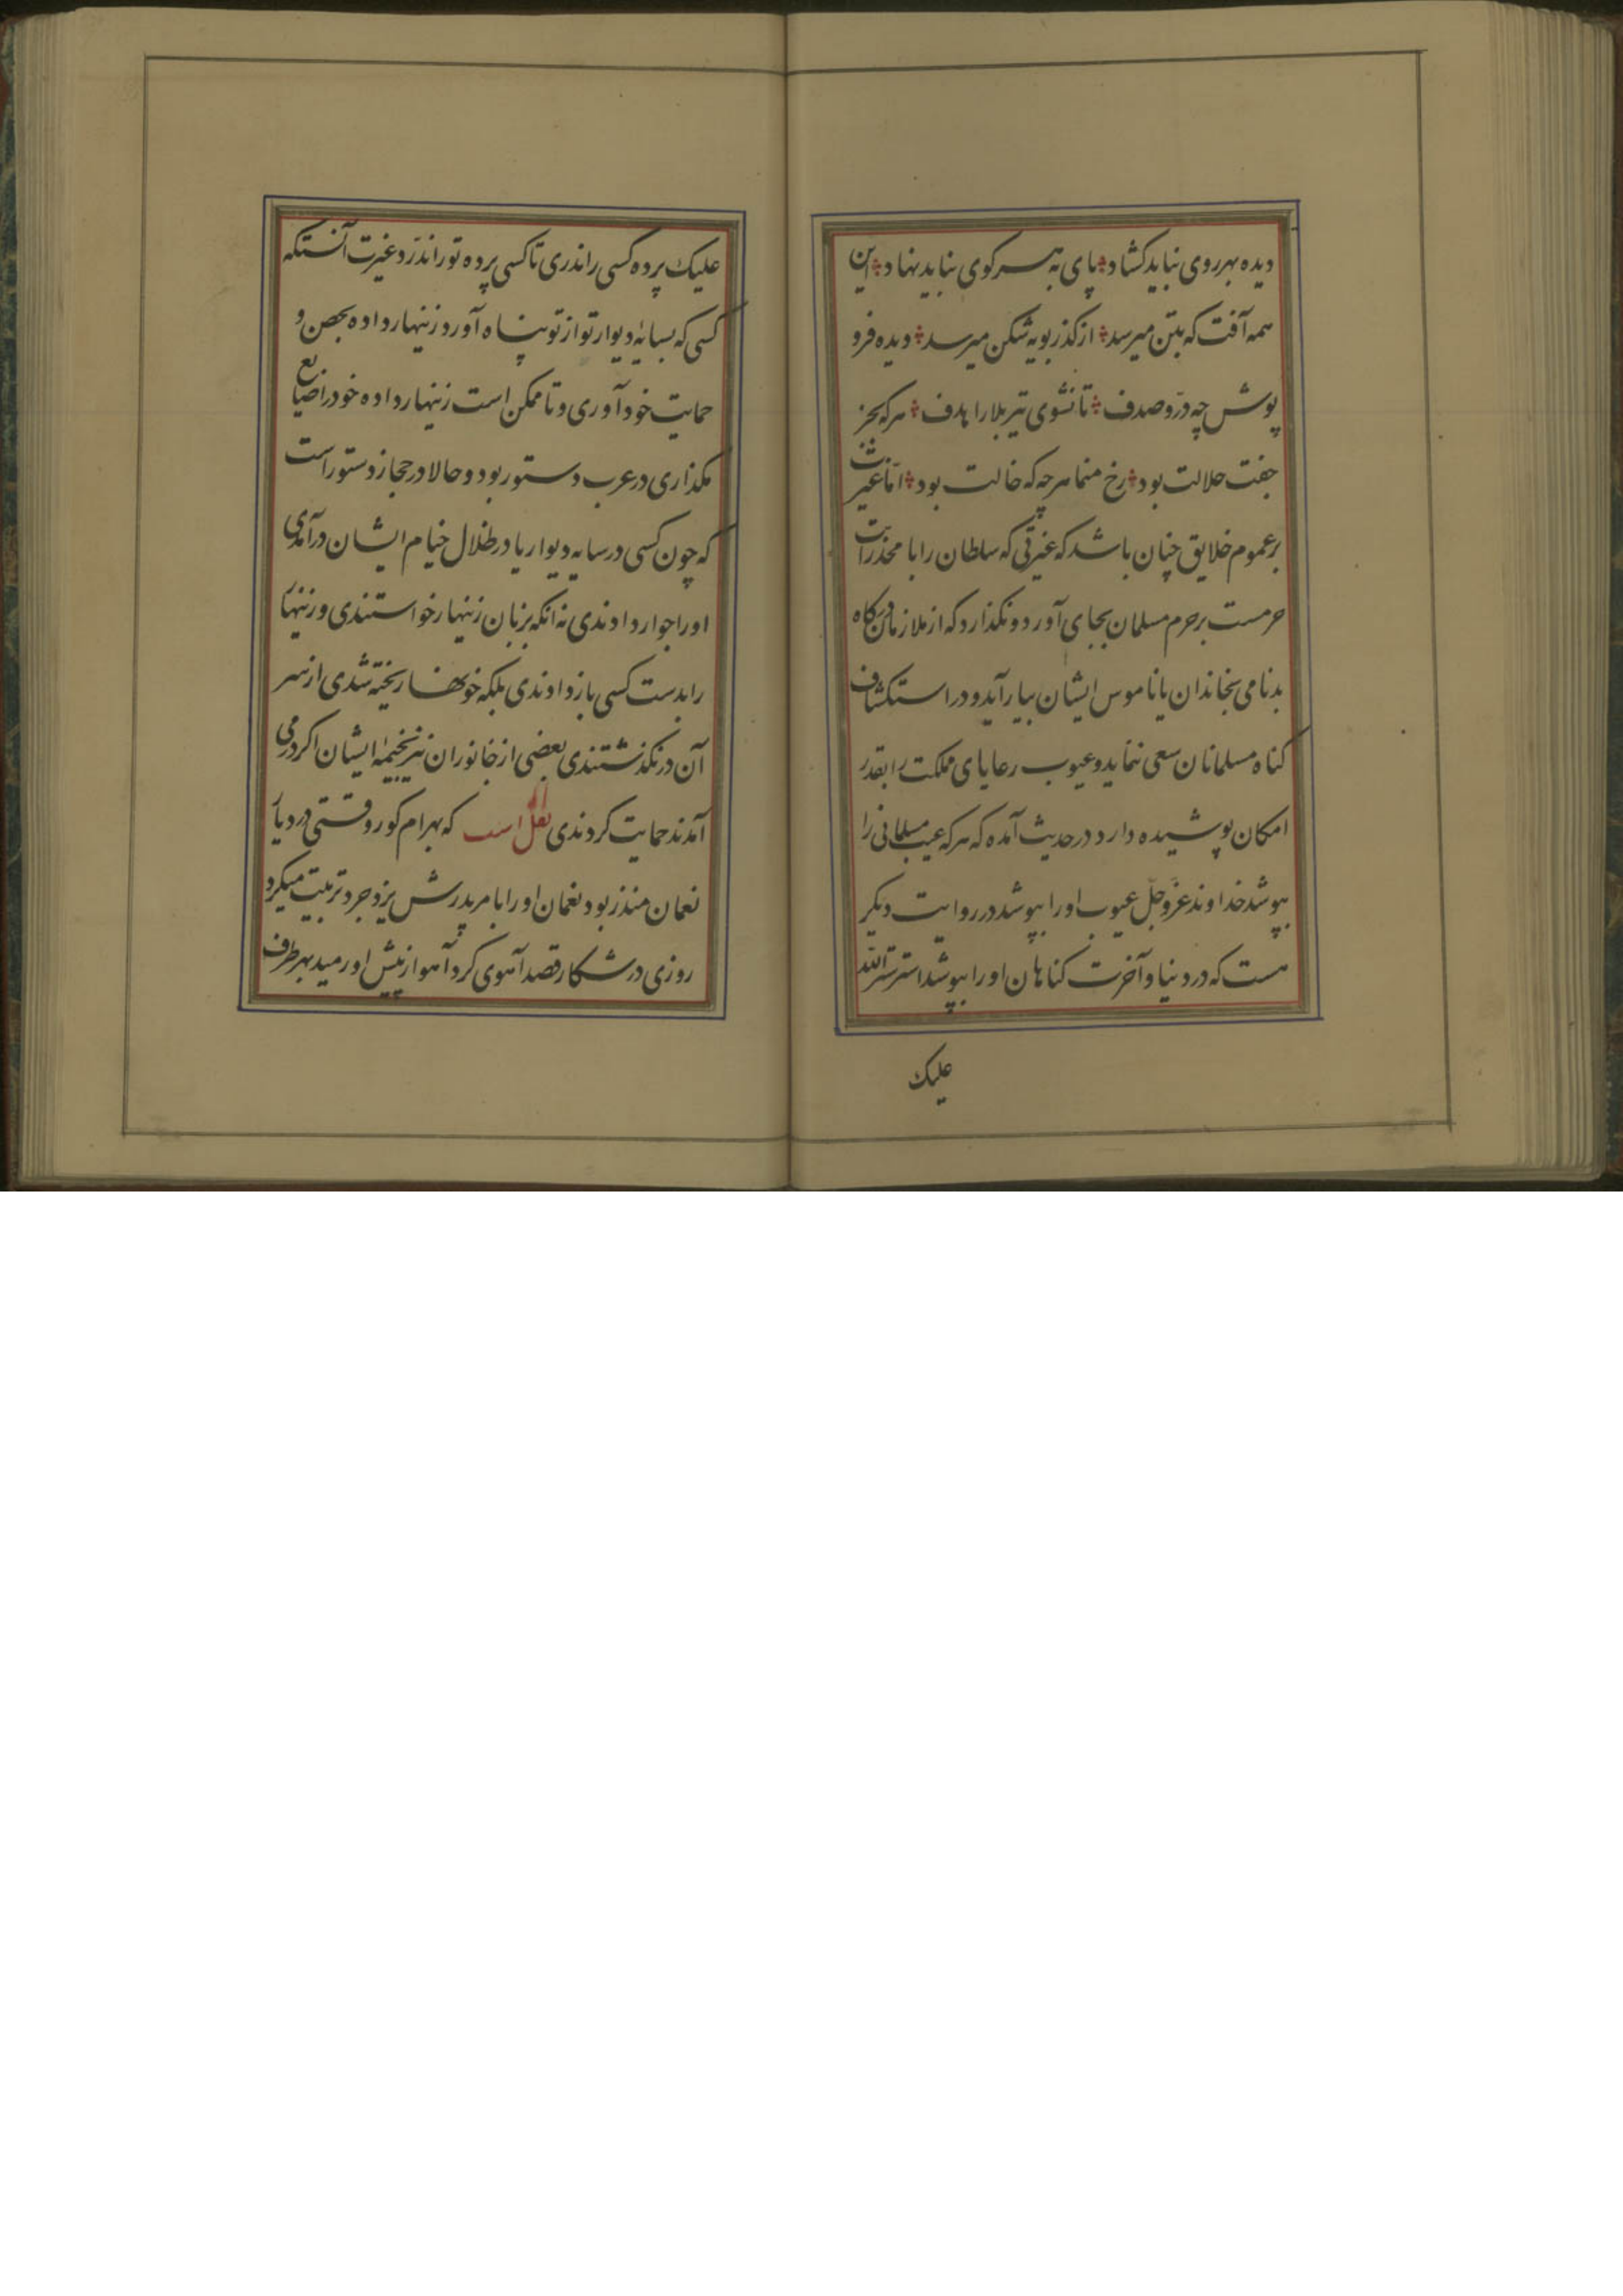 دیده بهر روی نباید کشاد ؞ پای به هر سر کوی نباید نهاد ؞ این
همه آفت که بتن میرسد ؞ از کذر بویه شکن میرسد ؞ دیده فرو
پوش چه در و صدف ؞ تا نشوی تیر بلا را هدف ؞ هر که بجز
جفت حلالت بود ؞ رخ منما هر چه که خالت بود ؞ اما غیرت
بر عموم خلایق چنان باشد که غیرتی که سلطان را با مخدرات
حرمست بر حرم مسلمان بجای آورد و نکذارد که از ملازمان درکاه
بدنامی بخاندان یا ناموس ایشان بیار آید و در استکشاف
کناه مسلمانان سعی ننماید و عیوب رعایای مملکت را بقدر
امکان پوشیده دارد در حدیث آمده که هر که عیب مسلمانی را
بپوشد خداوند عز و جل عیوب او را بپوشد در روایت دیکر
هست که در دنیا و آخرت کناهان او را بپوشد استر ستر الله
علیک
علیک پرده کسی را ندری تا کسی پرده تو را ندرد و غیرت آنستکه
کسی که بسایهٔ دیوار تو از تو پناه آورد زینهار داده بحصن و
حمایت خود آوری و تا ممکن است زینهار داده خود را ضایع
مکذاری در عرب دستور بود و حالا در حجاز دستور است
که چون کسی در سایه دیوار یا در ظلال خیام ایشان در آمدی
او را جوار دادندی نه انکه بزبان زینهار خواستندی و زینها
را بدست کسی باز دادندی بلکه خونها ریخته شدی از سر
آن در نکذشتندی بعضی از جانوران نیز بخیمهٔ ایشان اکر در می
آمدند حمایت کردندی نقل است که بهرام کور وقتی در دیار
نعمان منذر بود نعمان او را بامر پدرش یزدجرد تربیت میکرد
روزی در شکار قصد آهوی کرد آهو از پیش او رمید بهر طرف